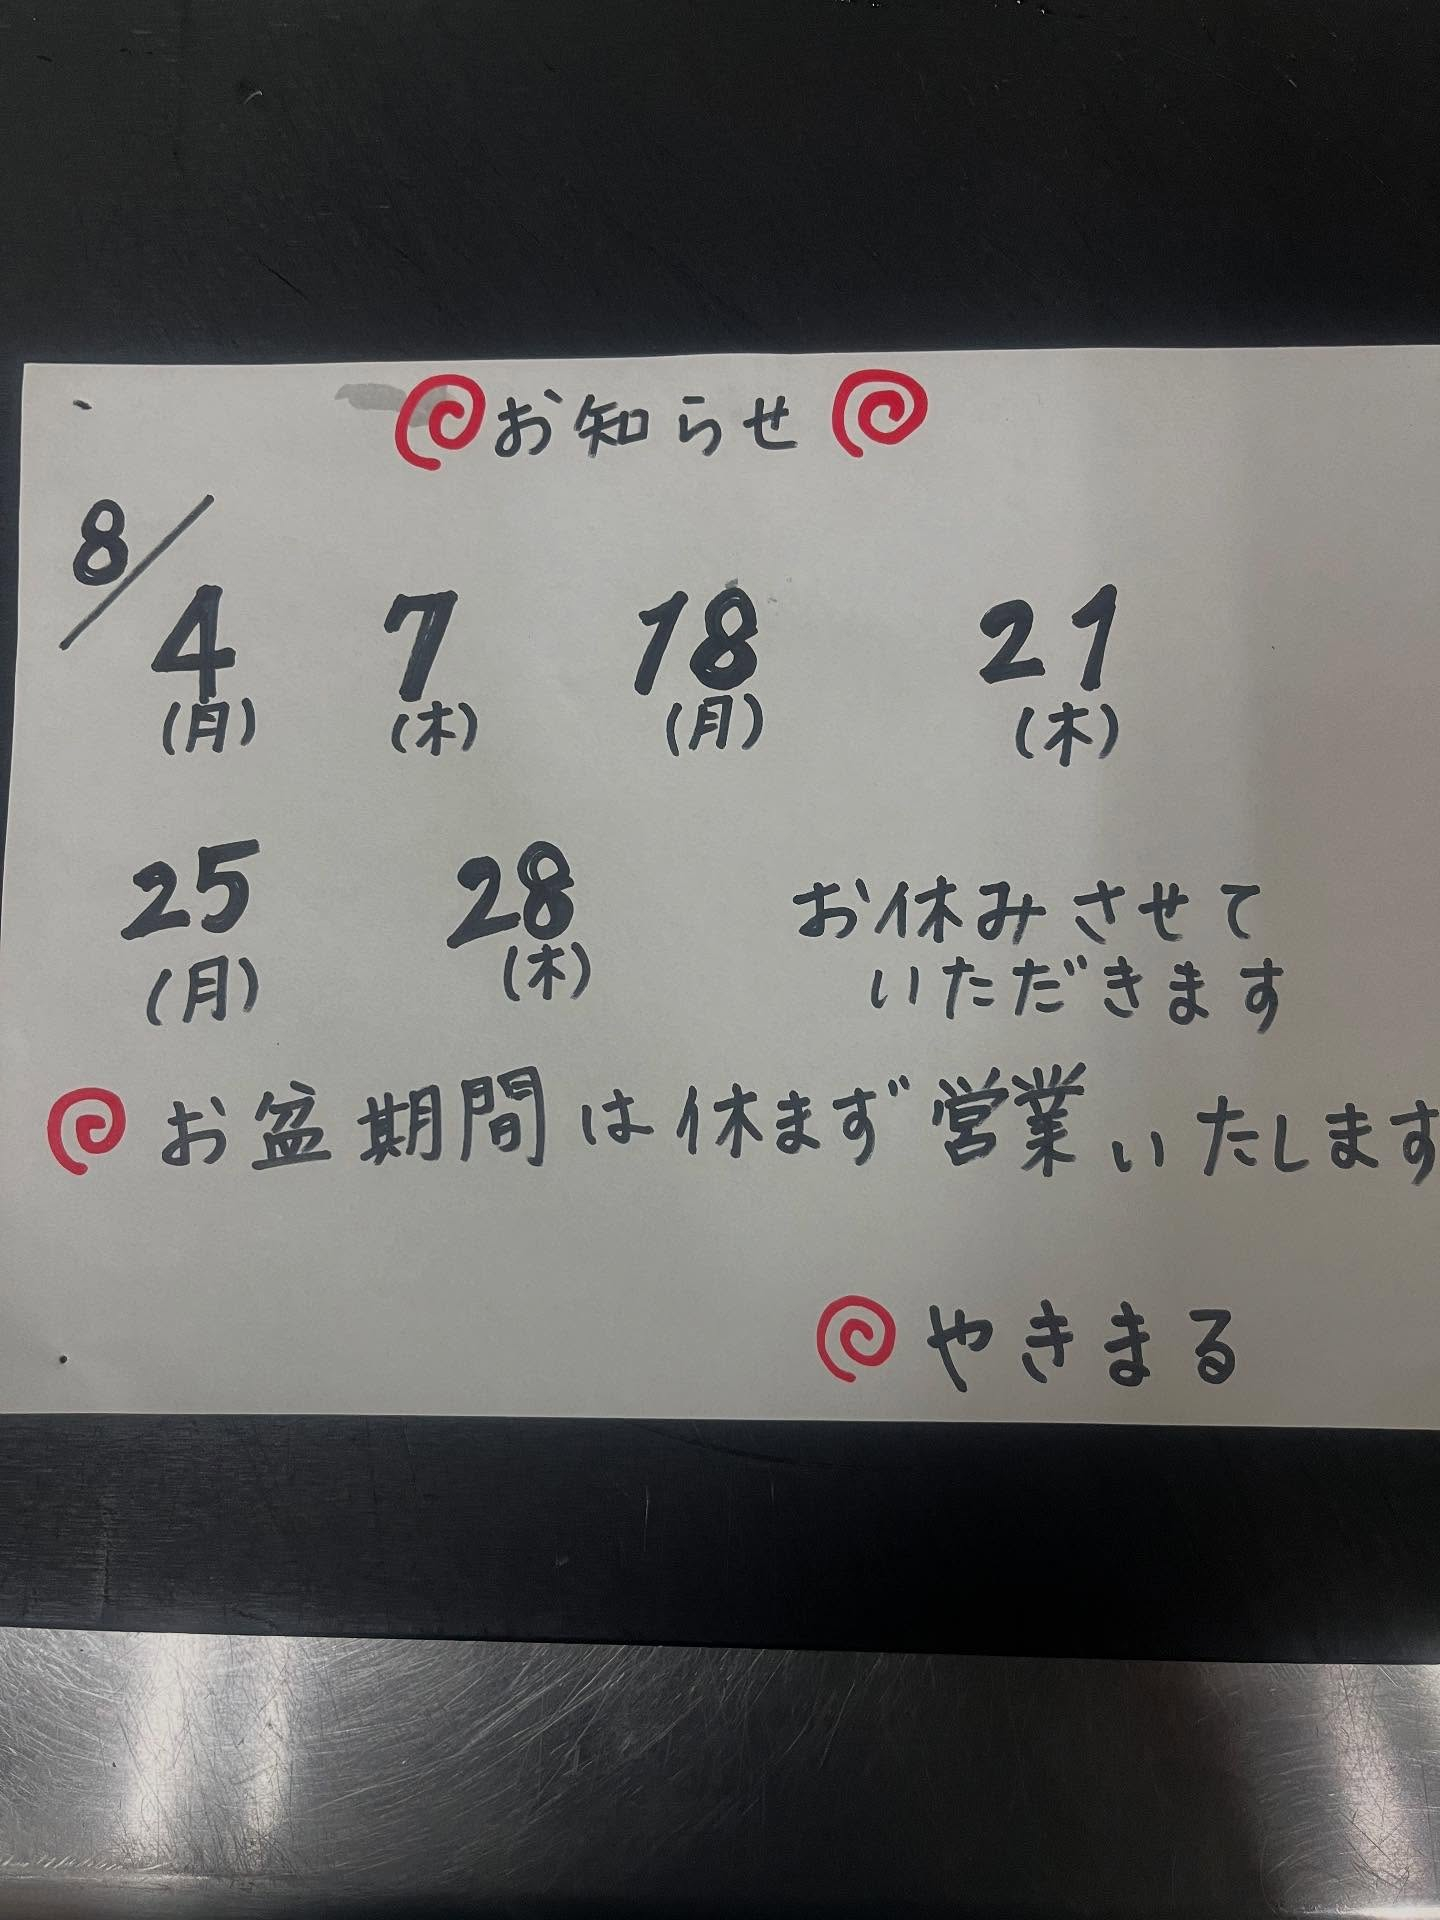 お知らせ
8/4 7 18 21
(月) (木) (月) (木)
25 28 お休みさせて
(月) (木) いただきます
お盆期間は休まず営業いたします
やきまる